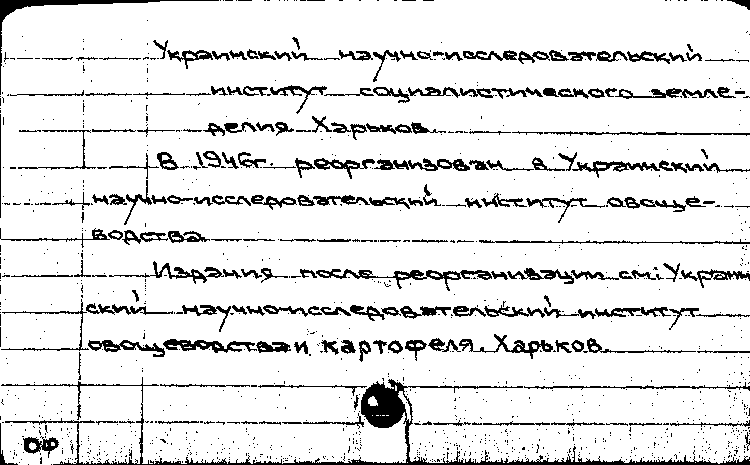 Украинский научно-исследовательский
институт социалистического земле-
делия. Харьков.
В 1946г. реорганизован в Украинский
научно-исследовательский институт овоще-
водства.
Издания после реорганизации см: Украин
ский научно-исследовательский институт
овощеводства и картофеля. Харьков.